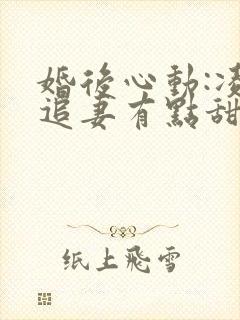 婚後心動:凌
追妻有點甜
纸上飛雪